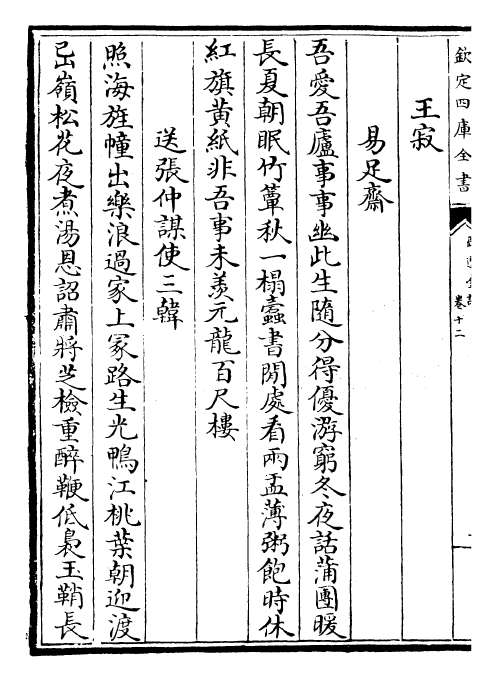 欽定四庫全書
卷十二
王寂
易足齋
吾愛吾廬事事幽此生隨分得優游窮冬夜話蒲團暖
長夏朝眠竹簟秋一榻蠧書閒處看兩盂薄粥飽時休
紅旗黃紙非吾事未羨元龍百尺樓
送張仲謀使三韓
照海旌幢出樂浪過家上冢路生光鴨江桃葉朝迎渡
嶺松花夜煮湯恩詔肅將芝檢重醉鞭低裊玉鞘長